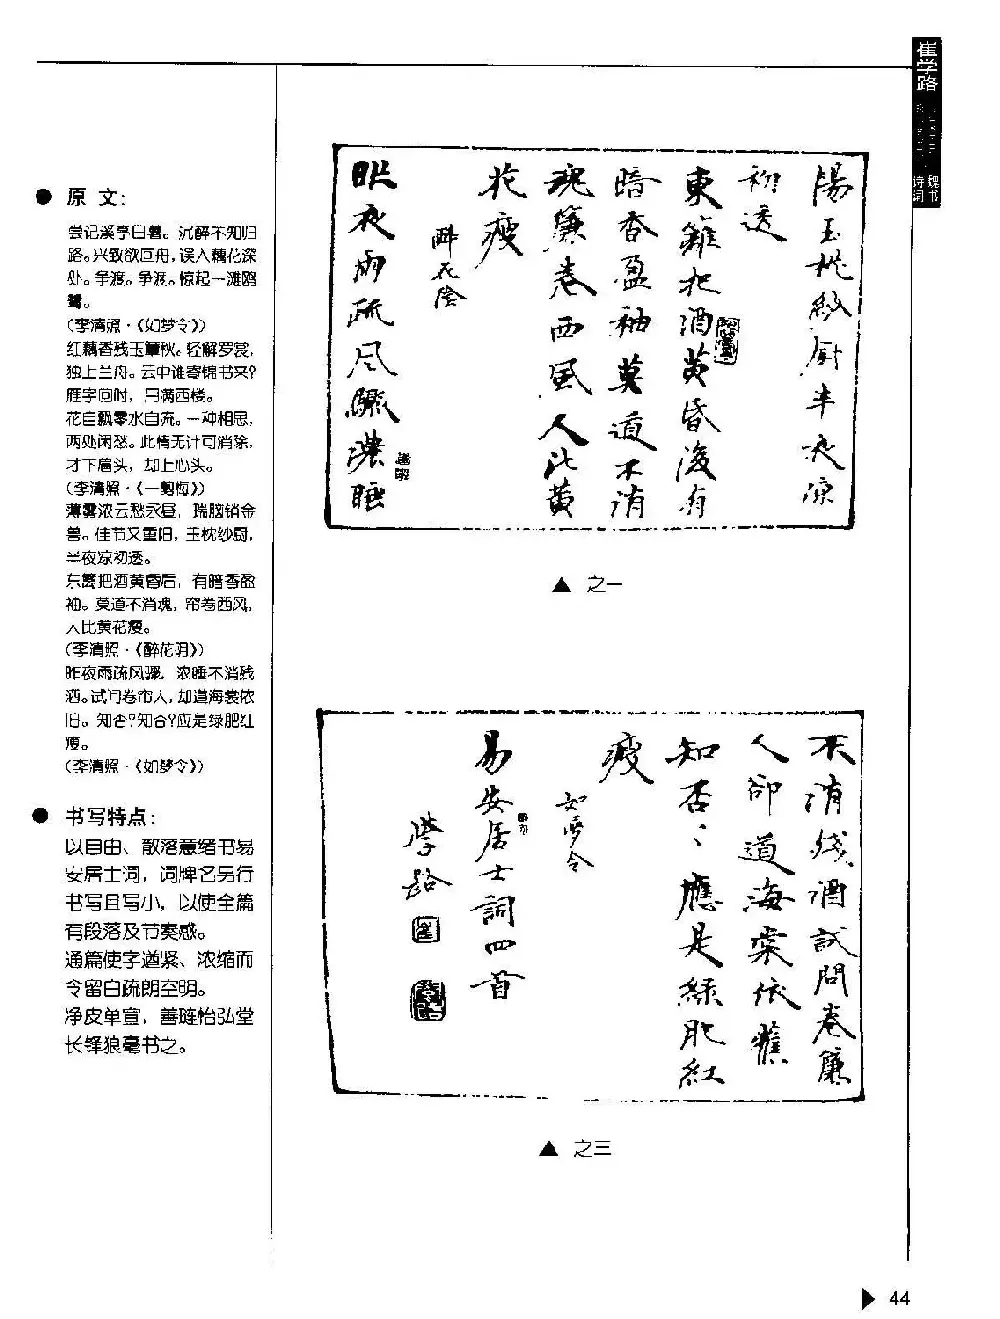 崔学路
魏书
诗词
原文:
尝记溪亭日暮。沉醉不知归
路。兴致欲回舟,误入藕花深
处。争渡。争渡。惊起一滩鸥
鹭。
(李清照·《如梦令》)
红藕香残玉簟秋。轻解罗裳,
独上兰舟。云中谁寄锦书来?
雁字回时,月满西楼。
花自飘零水自流。一种相思,
两处闲愁。此情无计可消除,
才下眉头,却上心头。
(李清照·《一剪梅》)
薄雾浓云愁永昼,瑞脑销金
兽。佳节又重阳,玉枕纱厨,
半夜凉初透。
东篱把酒黄昏后,有暗香盈
袖。莫道不消魂,帘卷西风,
人比黄花瘦。
(李清照·《醉花阴》)
昨夜雨疏风骤,浓睡不消残
酒。试问卷帘人,却道海棠依
旧。知否?知否?应是绿肥红
瘦。
(李清照·《如梦令》)
书写特点:
以自由、散落意绪书易
安居士词,词牌名另行
书写且写小,以使全篇
有段落及节奏感。
通篇使字遒紧、浓缩而
令留白疏朗空明。
净皮单宣,善琏怡弘堂
长锋狼毫书之。
陽玉枕紗廚半夜涼
初透
東籬把酒黄昏後有
暗香盈袖莫道不消
魂簾卷西風人比黄
花瘦
醉花陰
昨夜雨疏風驟濃睡
▲ 之一
不消殘酒試問卷簾
人卻道海棠依舊
知否〻應是緑肥紅
瘦
如夢令
易安居士詞四首
學路
▲ 之三
44